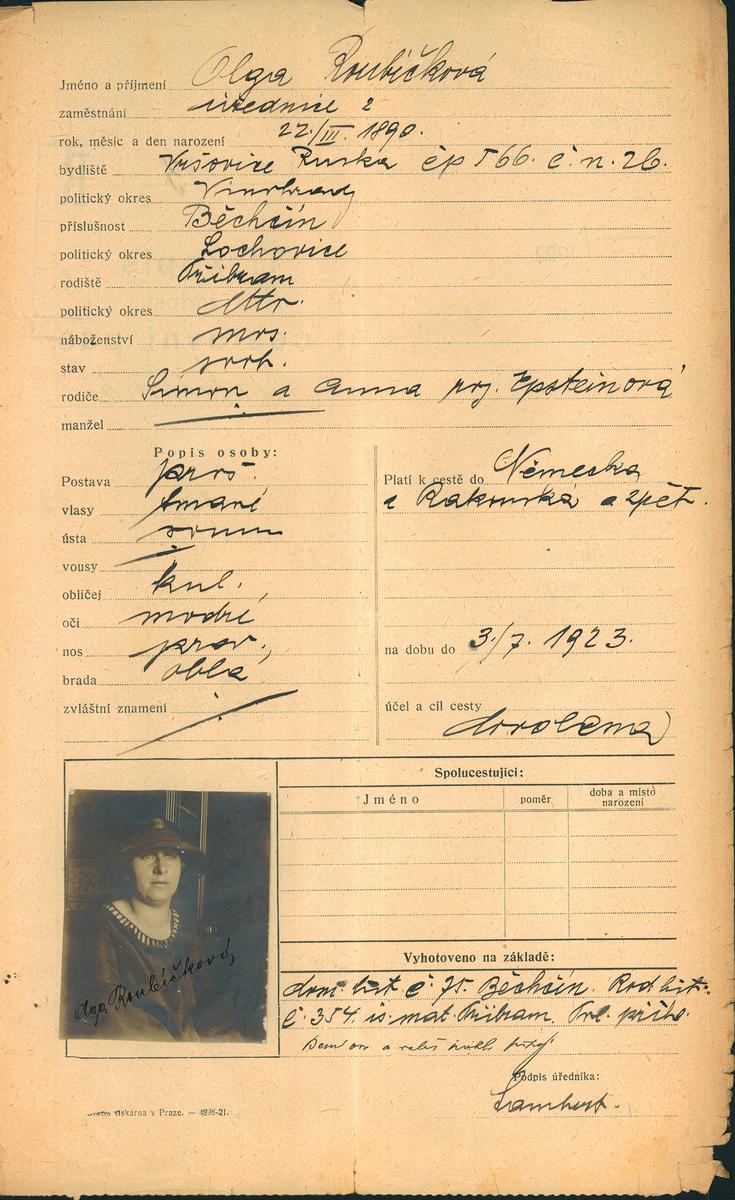 Jméno a příjmení Olga Roubíčková
zaměstnání úřednice
rok, měsíc a den narození 22./III. 1890.
bydliště Vršovice Ruská čp 566. č. n. 26.
politický okres Vinohrady
příslušnost Běhčín
politický okres Lochovice
rodiště Příbram
politický okres
náboženství mos.
stav svob.
rodiče Simon a Anna roz. Epsteinová
manžel
Popis osoby:
Postava pros.
vlasy tmavé
ústa soum
vousy
obličej kul.
oči modré
nos prav.,
brada oblá
zvláštní znamení
Platí k cestě do Německa
a Rakouska a zpět.
na dobu do 3./7. 1923.
účel a cíl cesty
dovolená
Spolucestující:
Jméno poměr doba a místo narození
Olga Roubíčková
Vyhotoveno na základě:
dom. list č. 75. Běhčín. Rod. list.
č. 354. is. mat. Příbram. Pol. přihl.
Podpis úředníka:
Lambert.
tiskárna v Praze. — 4898-21.